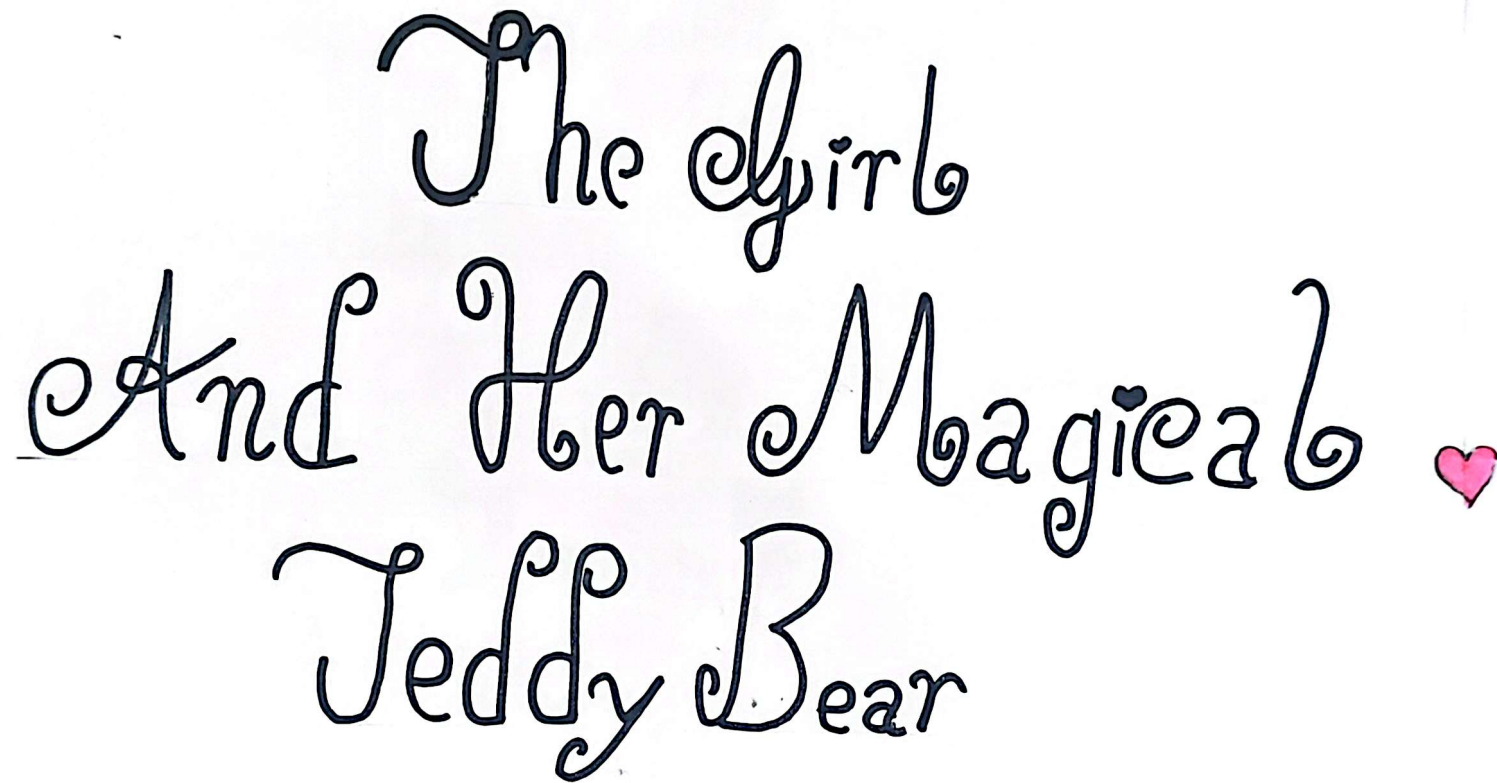 The Girl
And Her Magical
Teddy Bear